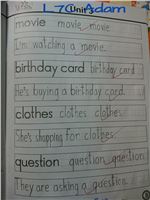 L7 Unit Adam
movie movie movie
I'm watching a movie.
birthday card birthday card
He's buying a birthday card.
clothes clothes clothes
She's shopping for clothes.
question question question
They are asking a question.